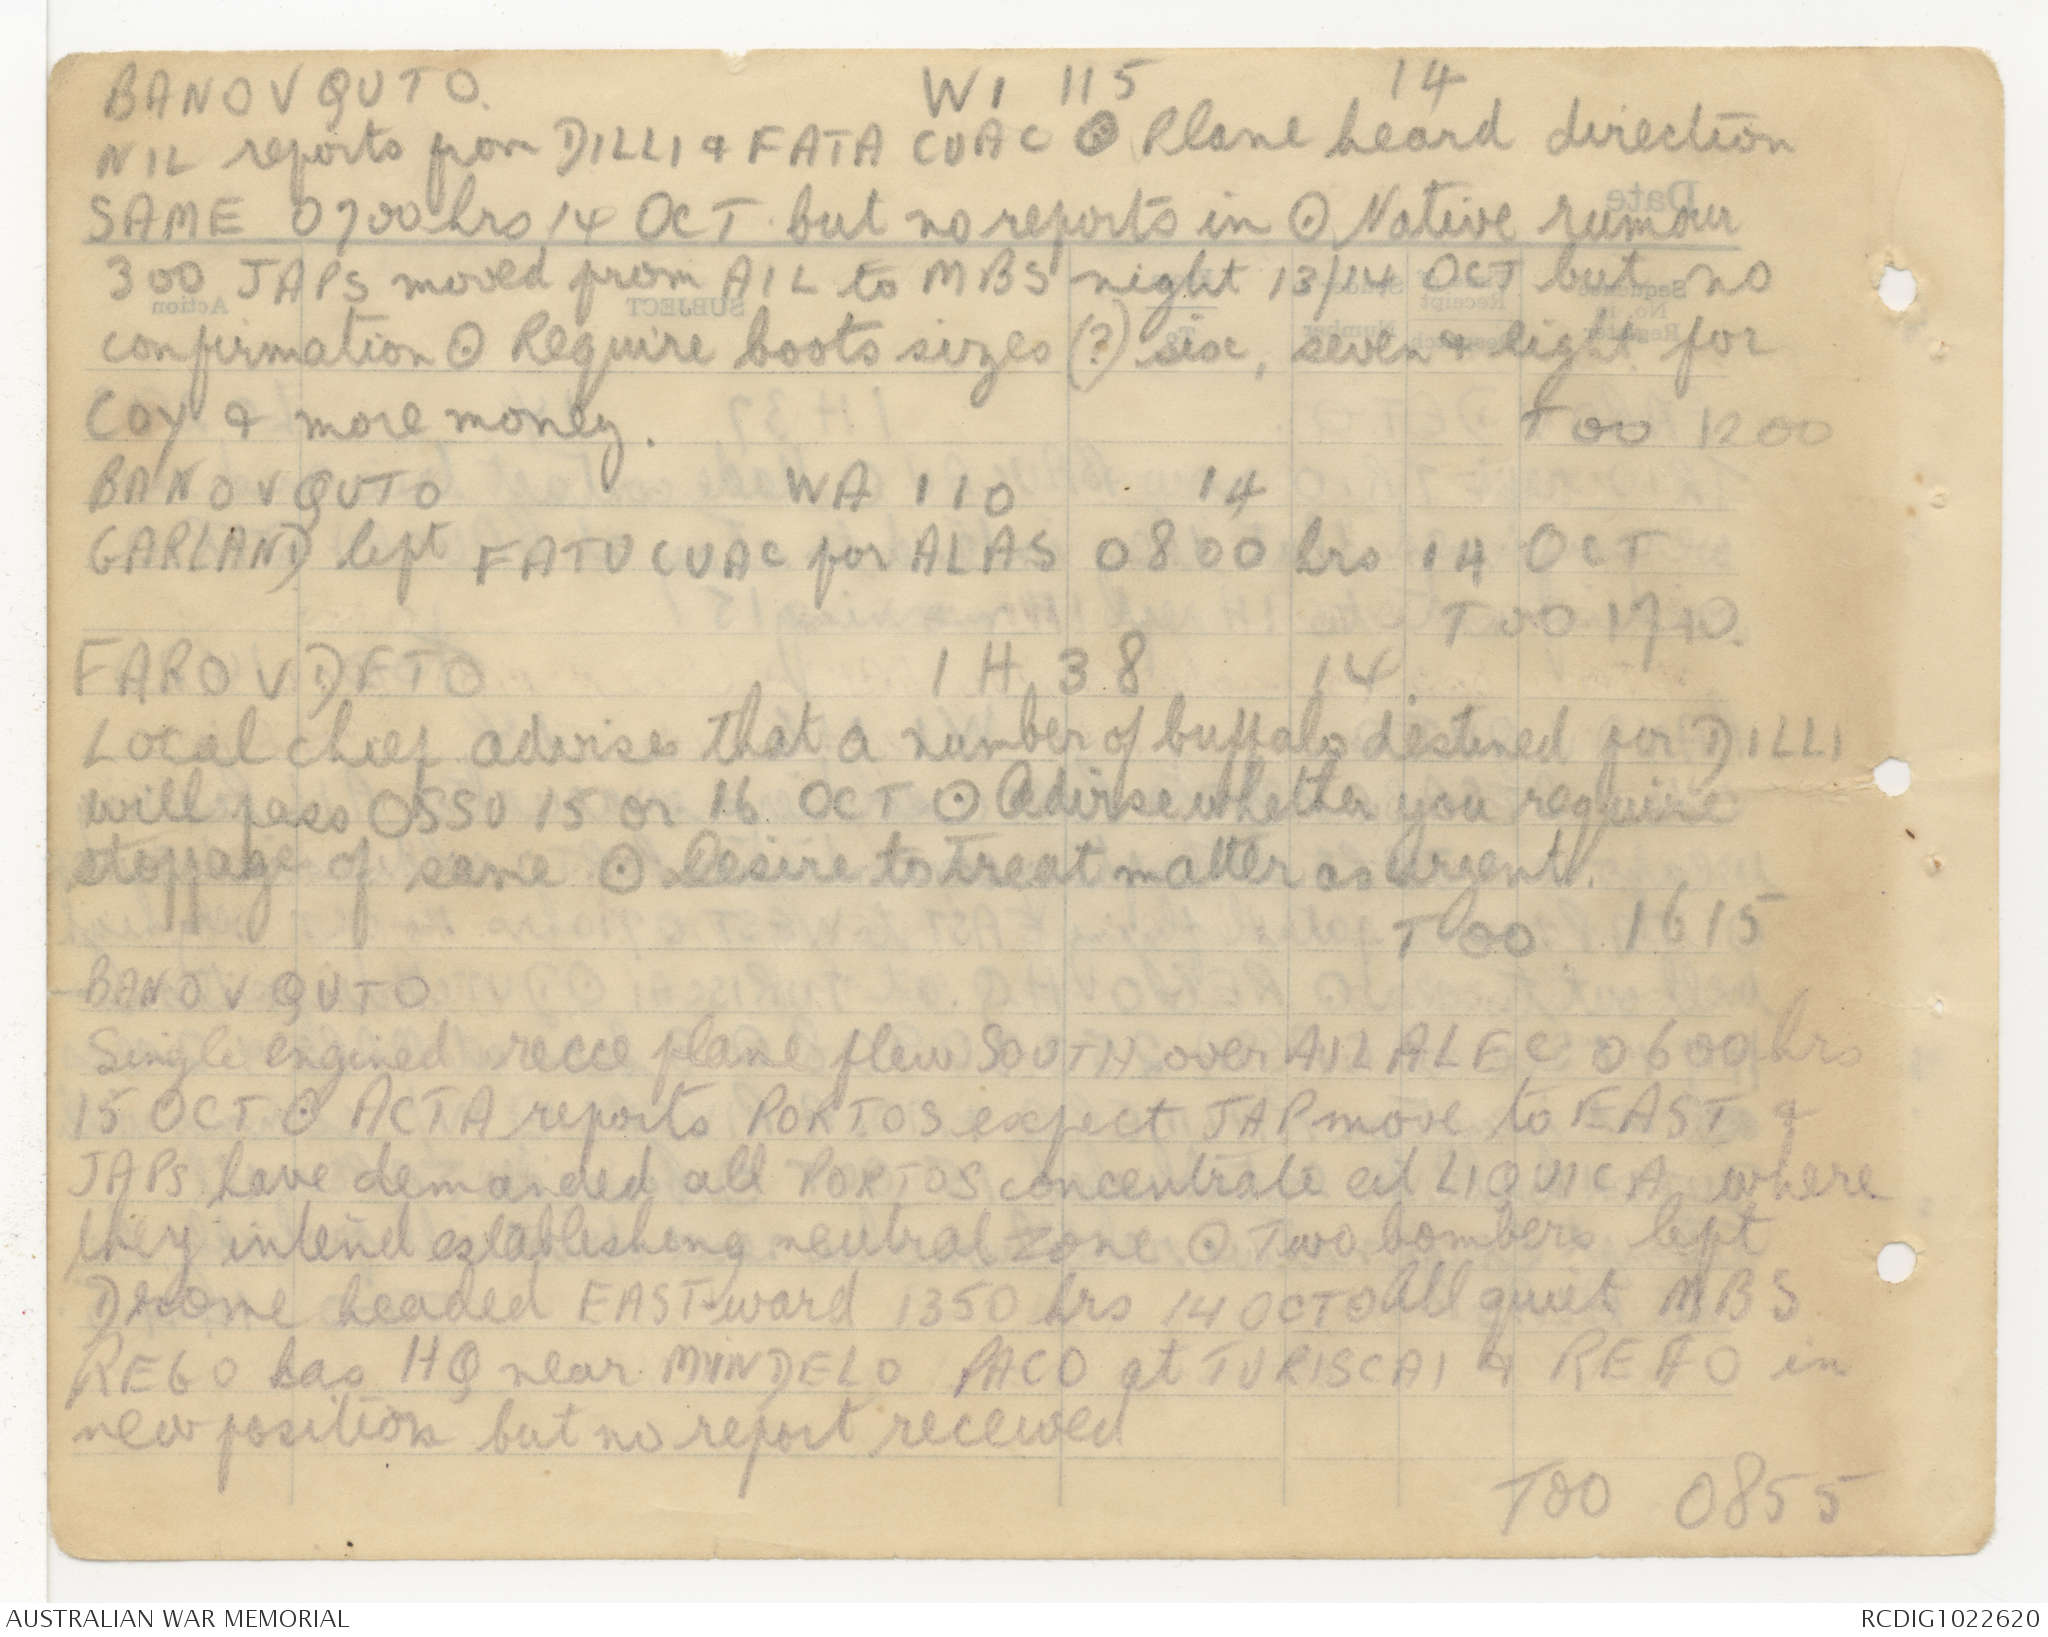 BANO V QUTO. WI 115 14
NIL reports from DILLI & FATA CUAC ⊙ Plane heard direction
SAME 0700 hrs 14 OCT but no reports in ⊙ Native rumour
300 JAPS moved from AIL to MBS night 13/14 OCT but no
confirmation ⊙ Require boots sizes (?) six, seven & eight for
Coy & more money.
T OO 1200
BANO V QUTO WA 110 14
GARLAND left FATUCUAC for ALAS 0800 hrs 14 OCT
T OO 1740.
FARO V DFTO 1H 38 14
Local chief advises that a number of buffalo destined for DILLI
will pass OSSU 15 or 16 OCT ⊙ Advise whether you require
stoppage of same ⊙ Desire to treat matter as urgent.
T OO 1615
BANO V QUTO
Single engined recce plane flew SOUTH over AILALEC 0600 hrs
15 OCT ⊙ ACTA reports PORTOS expect JAP move to EAST &
JAPS have demanded all PORTOS concentrate at LIQUICA where
they intend establishing neutral zone ⊙ Two bombers left
Drome headed EAST-ward 1350 hrs 14 OCT ⊙ All quiet MBS
REGO has HQ near MINDELO PACO at TURISCAI & REFO in
new position but no report received
TOO 0855
Date
SUBJECT
Action
AUSTRALIAN WAR MEMORIAL
RCDIG1022620